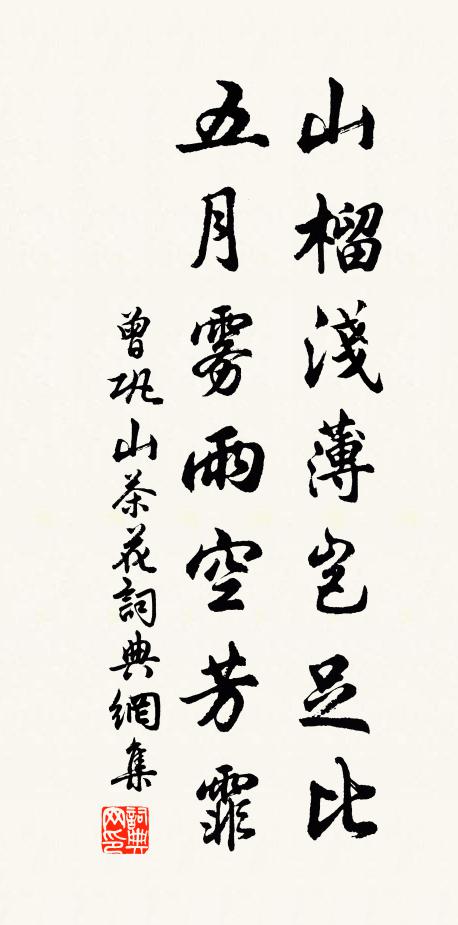 山榴淺薄豈足比
五月雾雨空芳霏
曾巩山茶花詞典網集
詞典网印